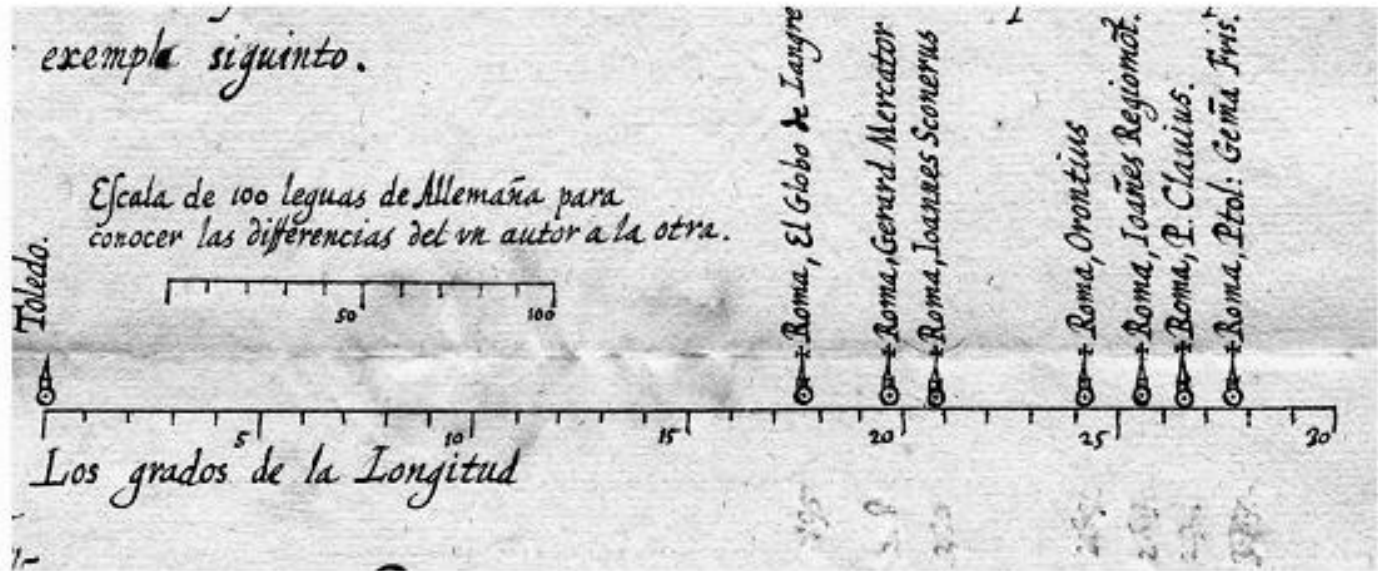 exemplo siguinto.
Escala de 100 leguas de Allemaña para
conocer las differencias del vn autor a la otra.
50 100
Toledo.
Roma, El Globo de Langre
Roma, Gerard Mercator
Roma, Ioannes Sconerus
Roma, Orontius
Roma, Ioañes Regiomōt.
Roma, P. Clauius.
Roma, Ptol: Gem̃a Fris.
5 10 15 20 25 30
Los grados de la Longitud